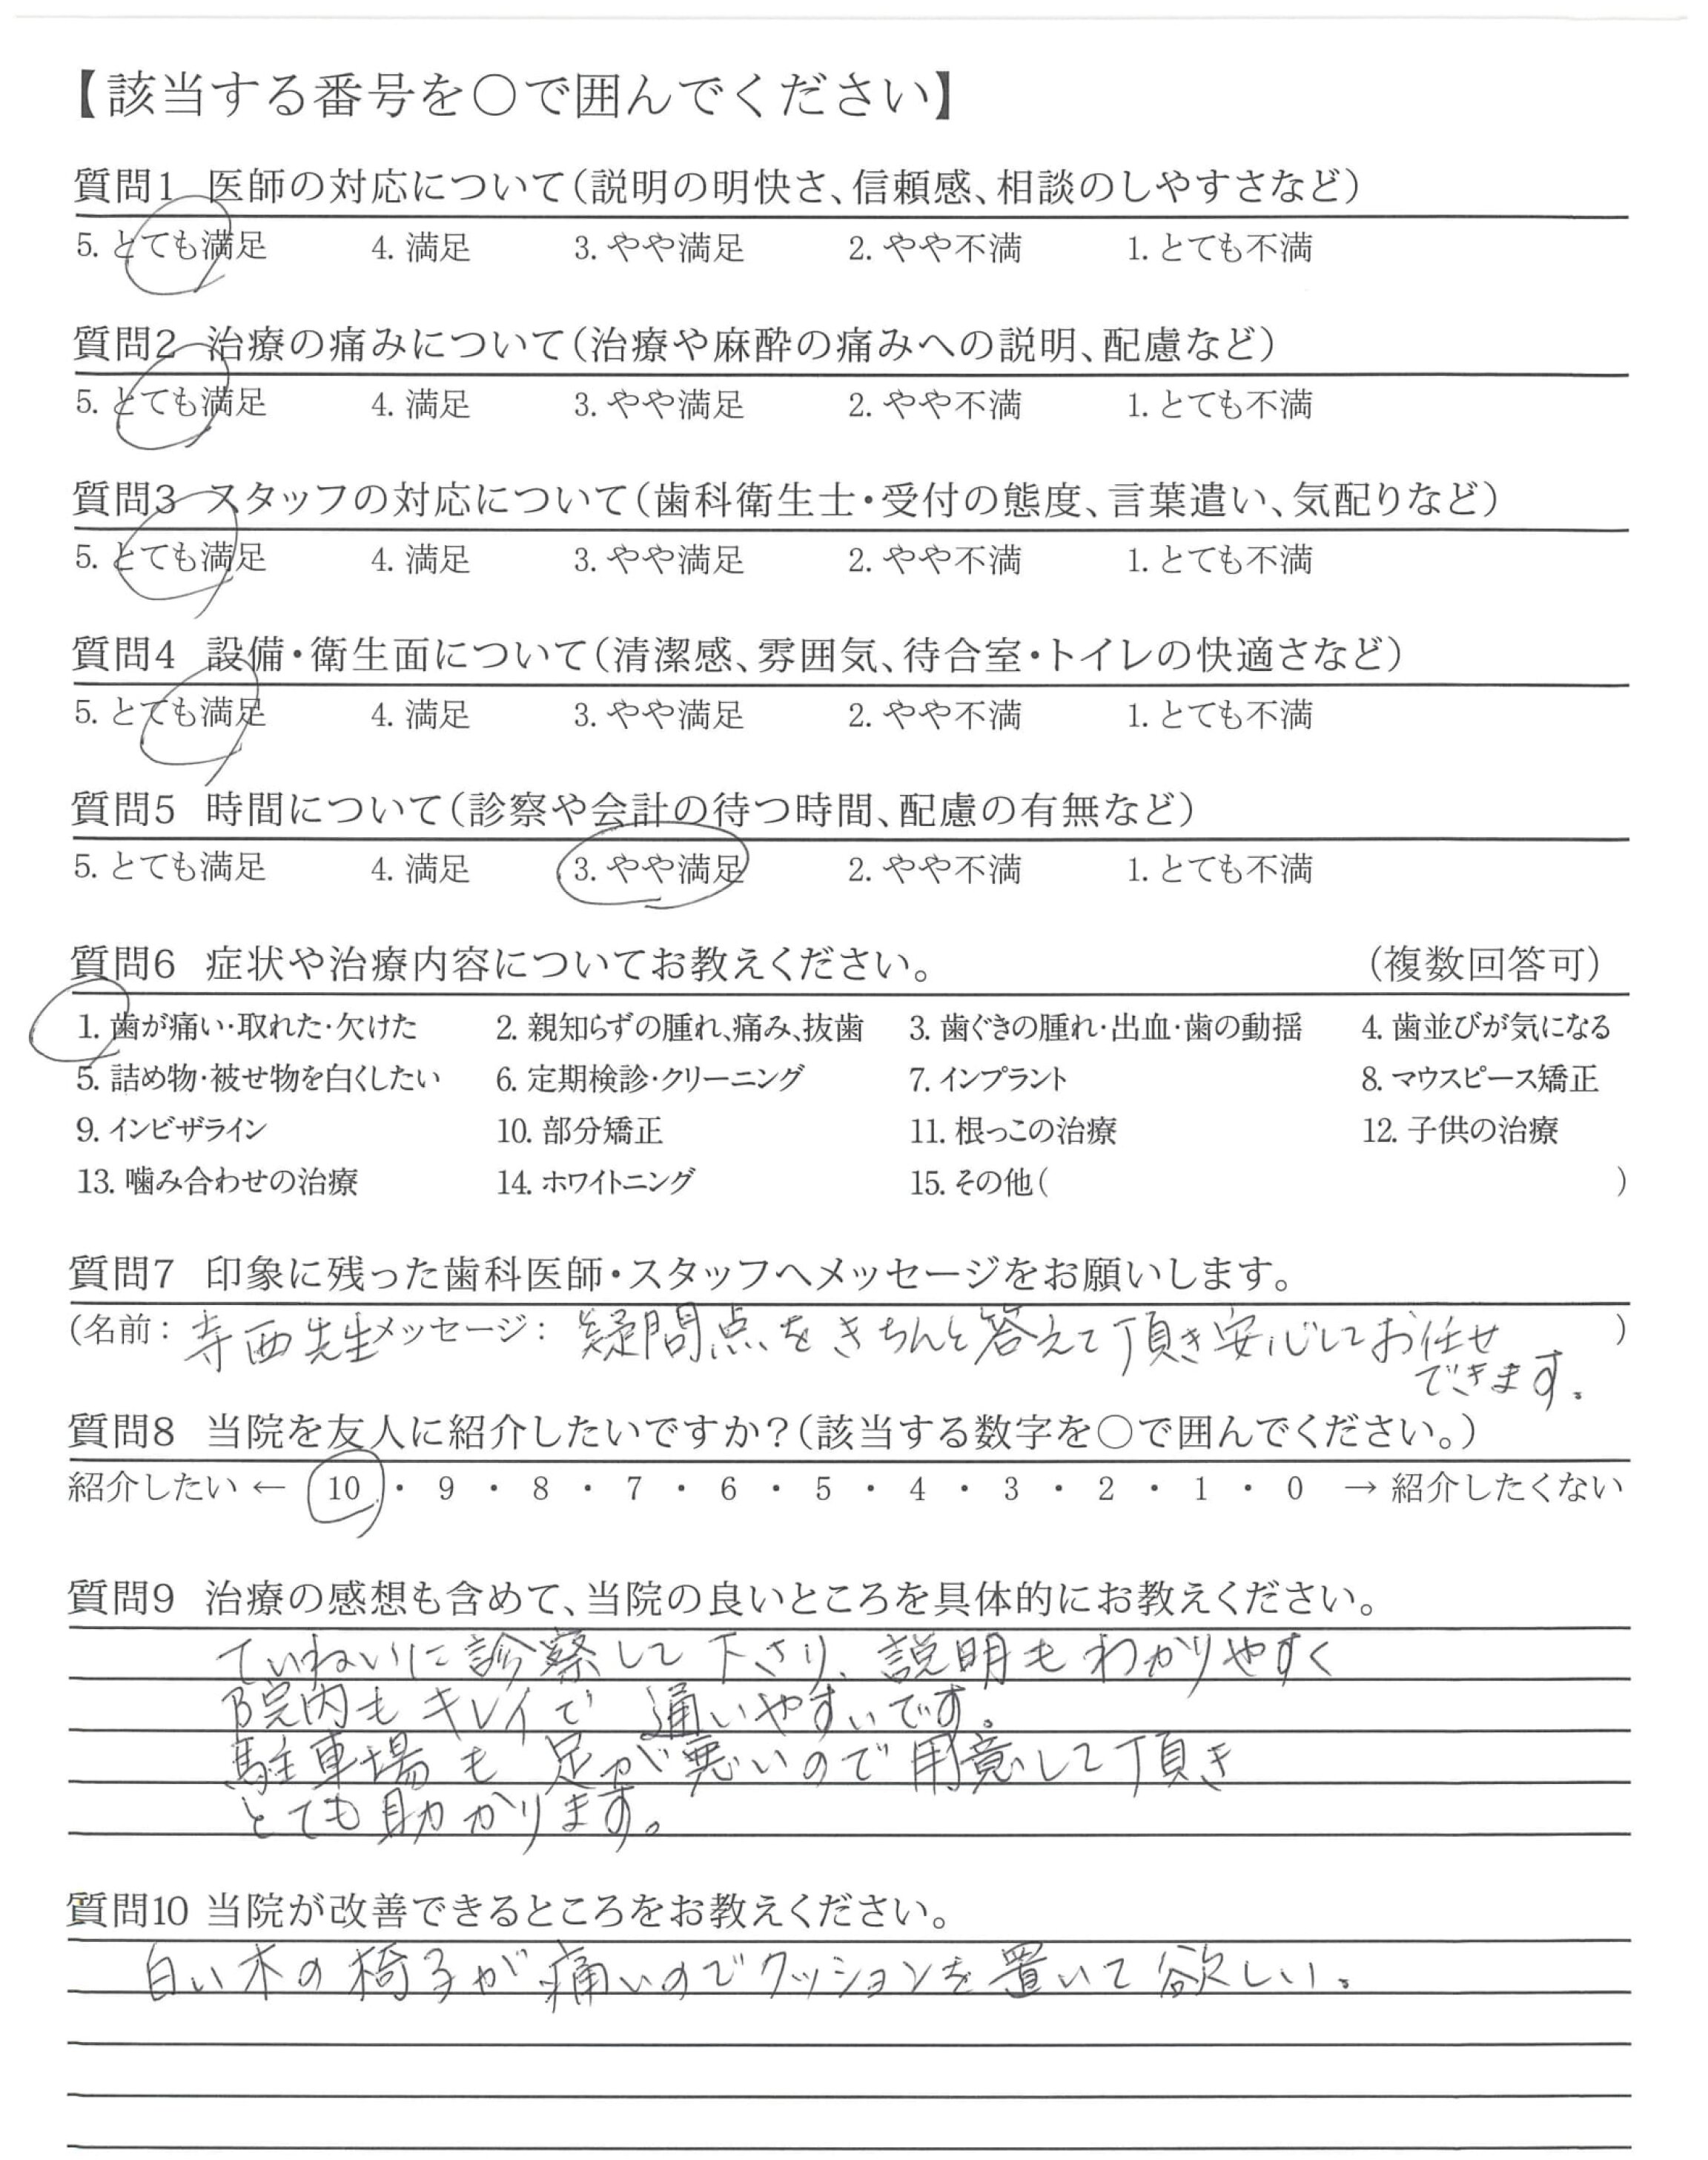 【該当する番号を○で囲んでください】
質問1 医師の対応について(説明の明快さ、信頼感、相談のしやすさなど)
5. とても満足 4. 満足 3. やや満足 2. やや不満 1. とても不満
質問2 治療の痛みについて(治療や麻酔の痛みへの説明、配慮など)
5. とても満足 4. 満足 3. やや満足 2. やや不満 1. とても不満
質問3 スタッフの対応について(歯科衛生士・受付の態度、言葉遣い、気配りなど)
5. とても満足 4. 満足 3. やや満足 2. やや不満 1. とても不満
質問4 設備・衛生面について(清潔感、雰囲気、待合室・トイレの快適さなど)
5. とても満足 4. 満足 3. やや満足 2. やや不満 1. とても不満
質問5 時間について(診察や会計の待つ時間、配慮の有無など)
5. とても満足 4. 満足 3. やや満足 2. やや不満 1. とても不満
質問6 症状や治療内容についてお教えください。 (複数回答可)
1. 歯が痛い・取れた・欠けた 2. 親知らずの腫れ、痛み、抜歯 3. 歯ぐきの腫れ・出血・歯の動揺 4. 歯並びが気になる
5. 詰め物・被せ物を白くしたい 6. 定期検診・クリーニング 7. インプラント 8. マウスピース矯正
9. インビザライン 10. 部分矯正 11. 根っこの治療 12. 子供の治療
13. 噛み合わせの治療 14. ホワイトニング 15. その他( )
質問7 印象に残った歯科医師・スタッフへメッセージをお願いします。
(名前: 寺西先生 メッセージ: 疑問点をきちんと答えて頂き安心してお任せ )
できます。
質問8 当院を友人に紹介したいですか?(該当する数字を○で囲んでください。)
紹介したい ← 10 ・ 9 ・ 8 ・ 7 ・ 6 ・ 5 ・ 4 ・ 3 ・ 2 ・ 1 ・ 0 → 紹介したくない
質問9 治療の感想も含めて、当院の良いところを具体的にお教えください。
ていねいに診察して下さり、説明もわかりやすく
院内もキレイで 通いやすいです。
駐車場も 足が悪いので用意して頂き
とても助かります。
質問10 当院が改善できるところをお教えください。
白い木の椅子が痛いのでクッションを置いて欲しい。